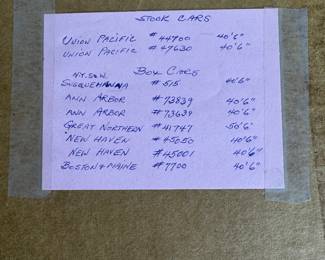 STOCK CARS
UNION PACIFIC #44700 40'6"
UNION PACIFIC #47630 40'6"
BOX CARS
N.Y.S&W.
SUSQUEHANNA #515 40'6"
ANN ARBOR #73839 40'6"
ANN ARBOR #73639 40'6"
GREAT NORTHERN #41747 50'6"
NEW HAVEN #45050 40'6"
NEW HAVEN #45001 40'6"
BOSTON & MAINE #7700 40'6"